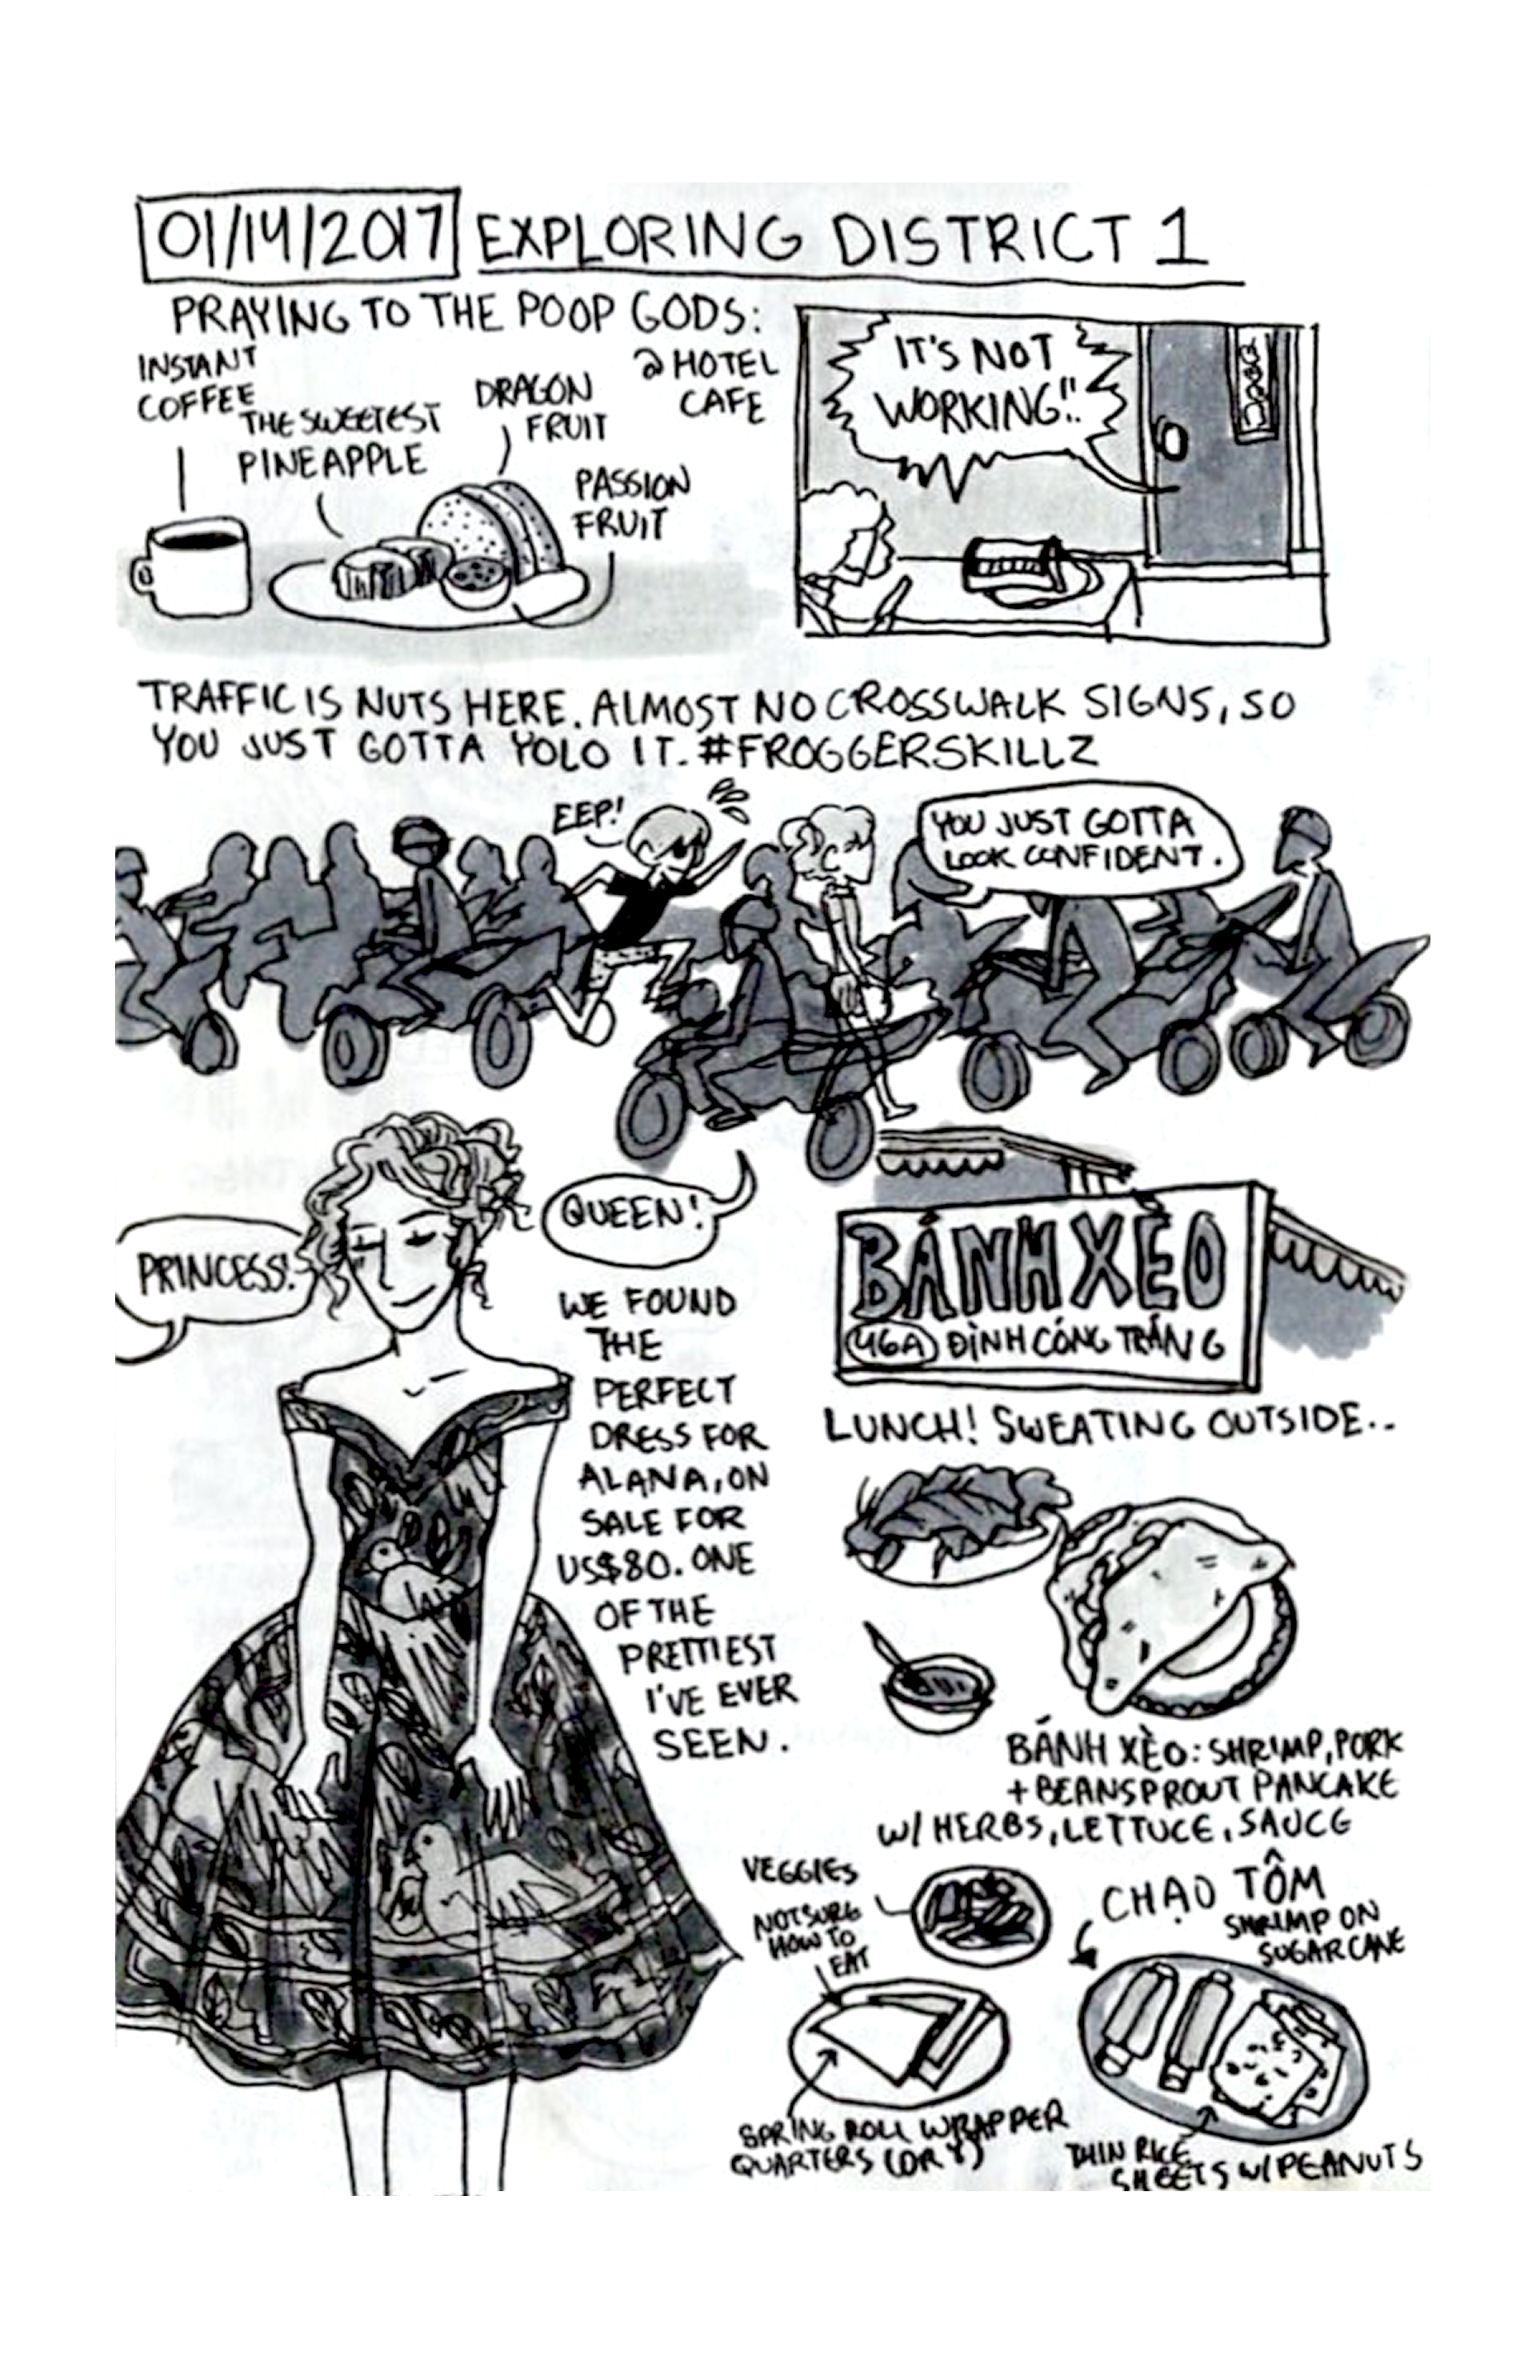 01/14/2017 EXPLORING DISTRICT 1
PRAYING TO THE POOP GODS:
@ HOTEL
CAFE
INSTANT
COFFEE
THE SWEETEST
PINEAPPLE
DRAGON
FRUIT
PASSION
FRUIT
IT'S NOT
WORKING!!
TRAFFIC IS NUTS HERE. ALMOST NO CROSSWALK SIGNS, SO
YOU JUST GOTTA YOLO IT. #FROGGERSKILLZ
EEP!
YOU JUST GOTTA
LOOK CONFIDENT.
PRINCESS!
QUEEN!
WE FOUND
THE
PERFECT
DRESS FOR
ALANA, ON
SALE FOR
US$80. ONE
OF THE
PRETTIEST
I'VE EVER
SEEN.
BÁNH XÈO
46A ĐÌNH CÓNG TRÁNG
LUNCH! SWEATING OUTSIDE..
BÁNH XÈO: SHRIMP, PORK
+ BEANSPROUT PANCAKE
W/ HERBS, LETTUCE, SAUCE
VEGGIES
NOT SURE
HOW TO
EAT
CHẠO TÔM
SHRIMP ON
SUGARCANE
SPRING ROLL WRAPPER
QUARTERS (DRY)
THIN RICE
SHEETS W/ PEANUTS